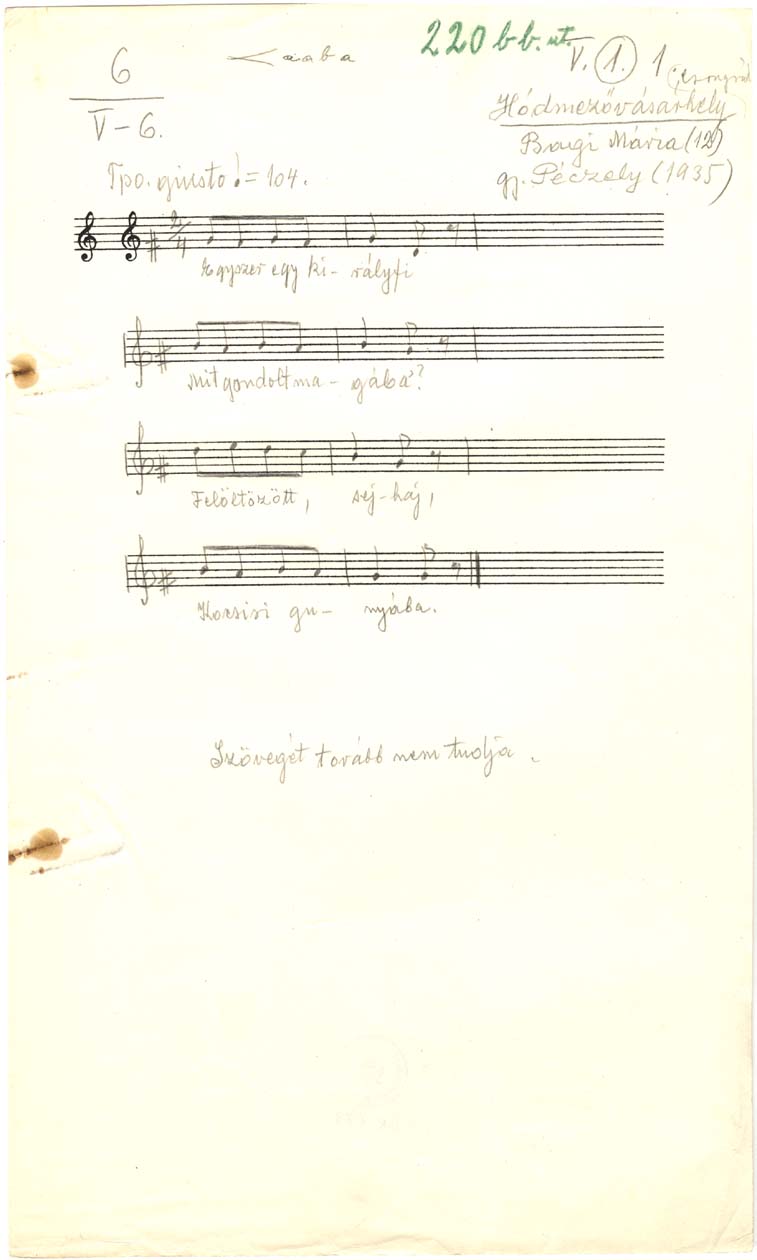 6
V-6.
aaba
220 bb. ut.
V. 1. 1
Csongrád
Hódmezővásárhely
Bagi Mária (12)
gy. Péczely (1935)
Tpo. giusto ♩= 104.
2/4
Egyszer egy ki- rályfi
Mit gondolt ma- gába'?
Felöltözött, séj-haj,
Kocsisi gu- nyába.
Szövegét tovább nem tudja.